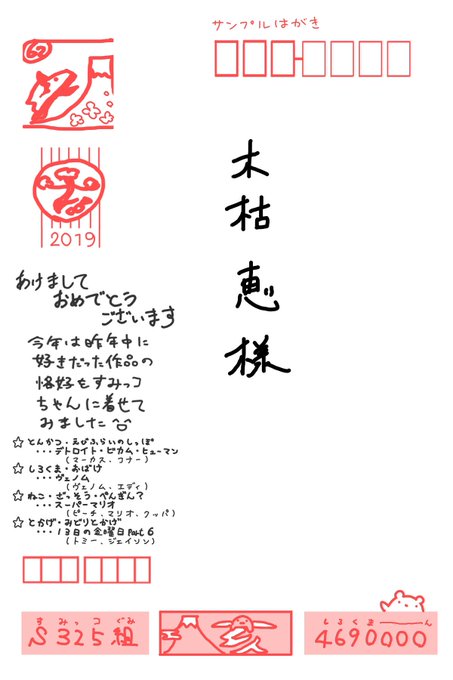 サンプルはがき
木枯恵様
2019
あけまして
おめでとう
ございます
今年は昨年中に
好きだった作品の
恰好をすみっコ
ちゃんに着せて
みました
☆とんかつ・えびふらいのしっぽ
・・・デトロイト・ビカム・ヒューマン
(マーカス、コナー)
☆しろくま・おばけ
・・・ヴェノム
(ヴェノム、エディ)
☆ねこ・ざっそう・ぺんぎん?
・・・スーパーマリオ
(ピーチ、マリオ、クッパ)
☆とかげ・みどりとかげ
・・・13日の金曜日Part6
(トミー、ジェイソン)
すみっコぐみ
S325組
亥
しろくま―ん
4690000